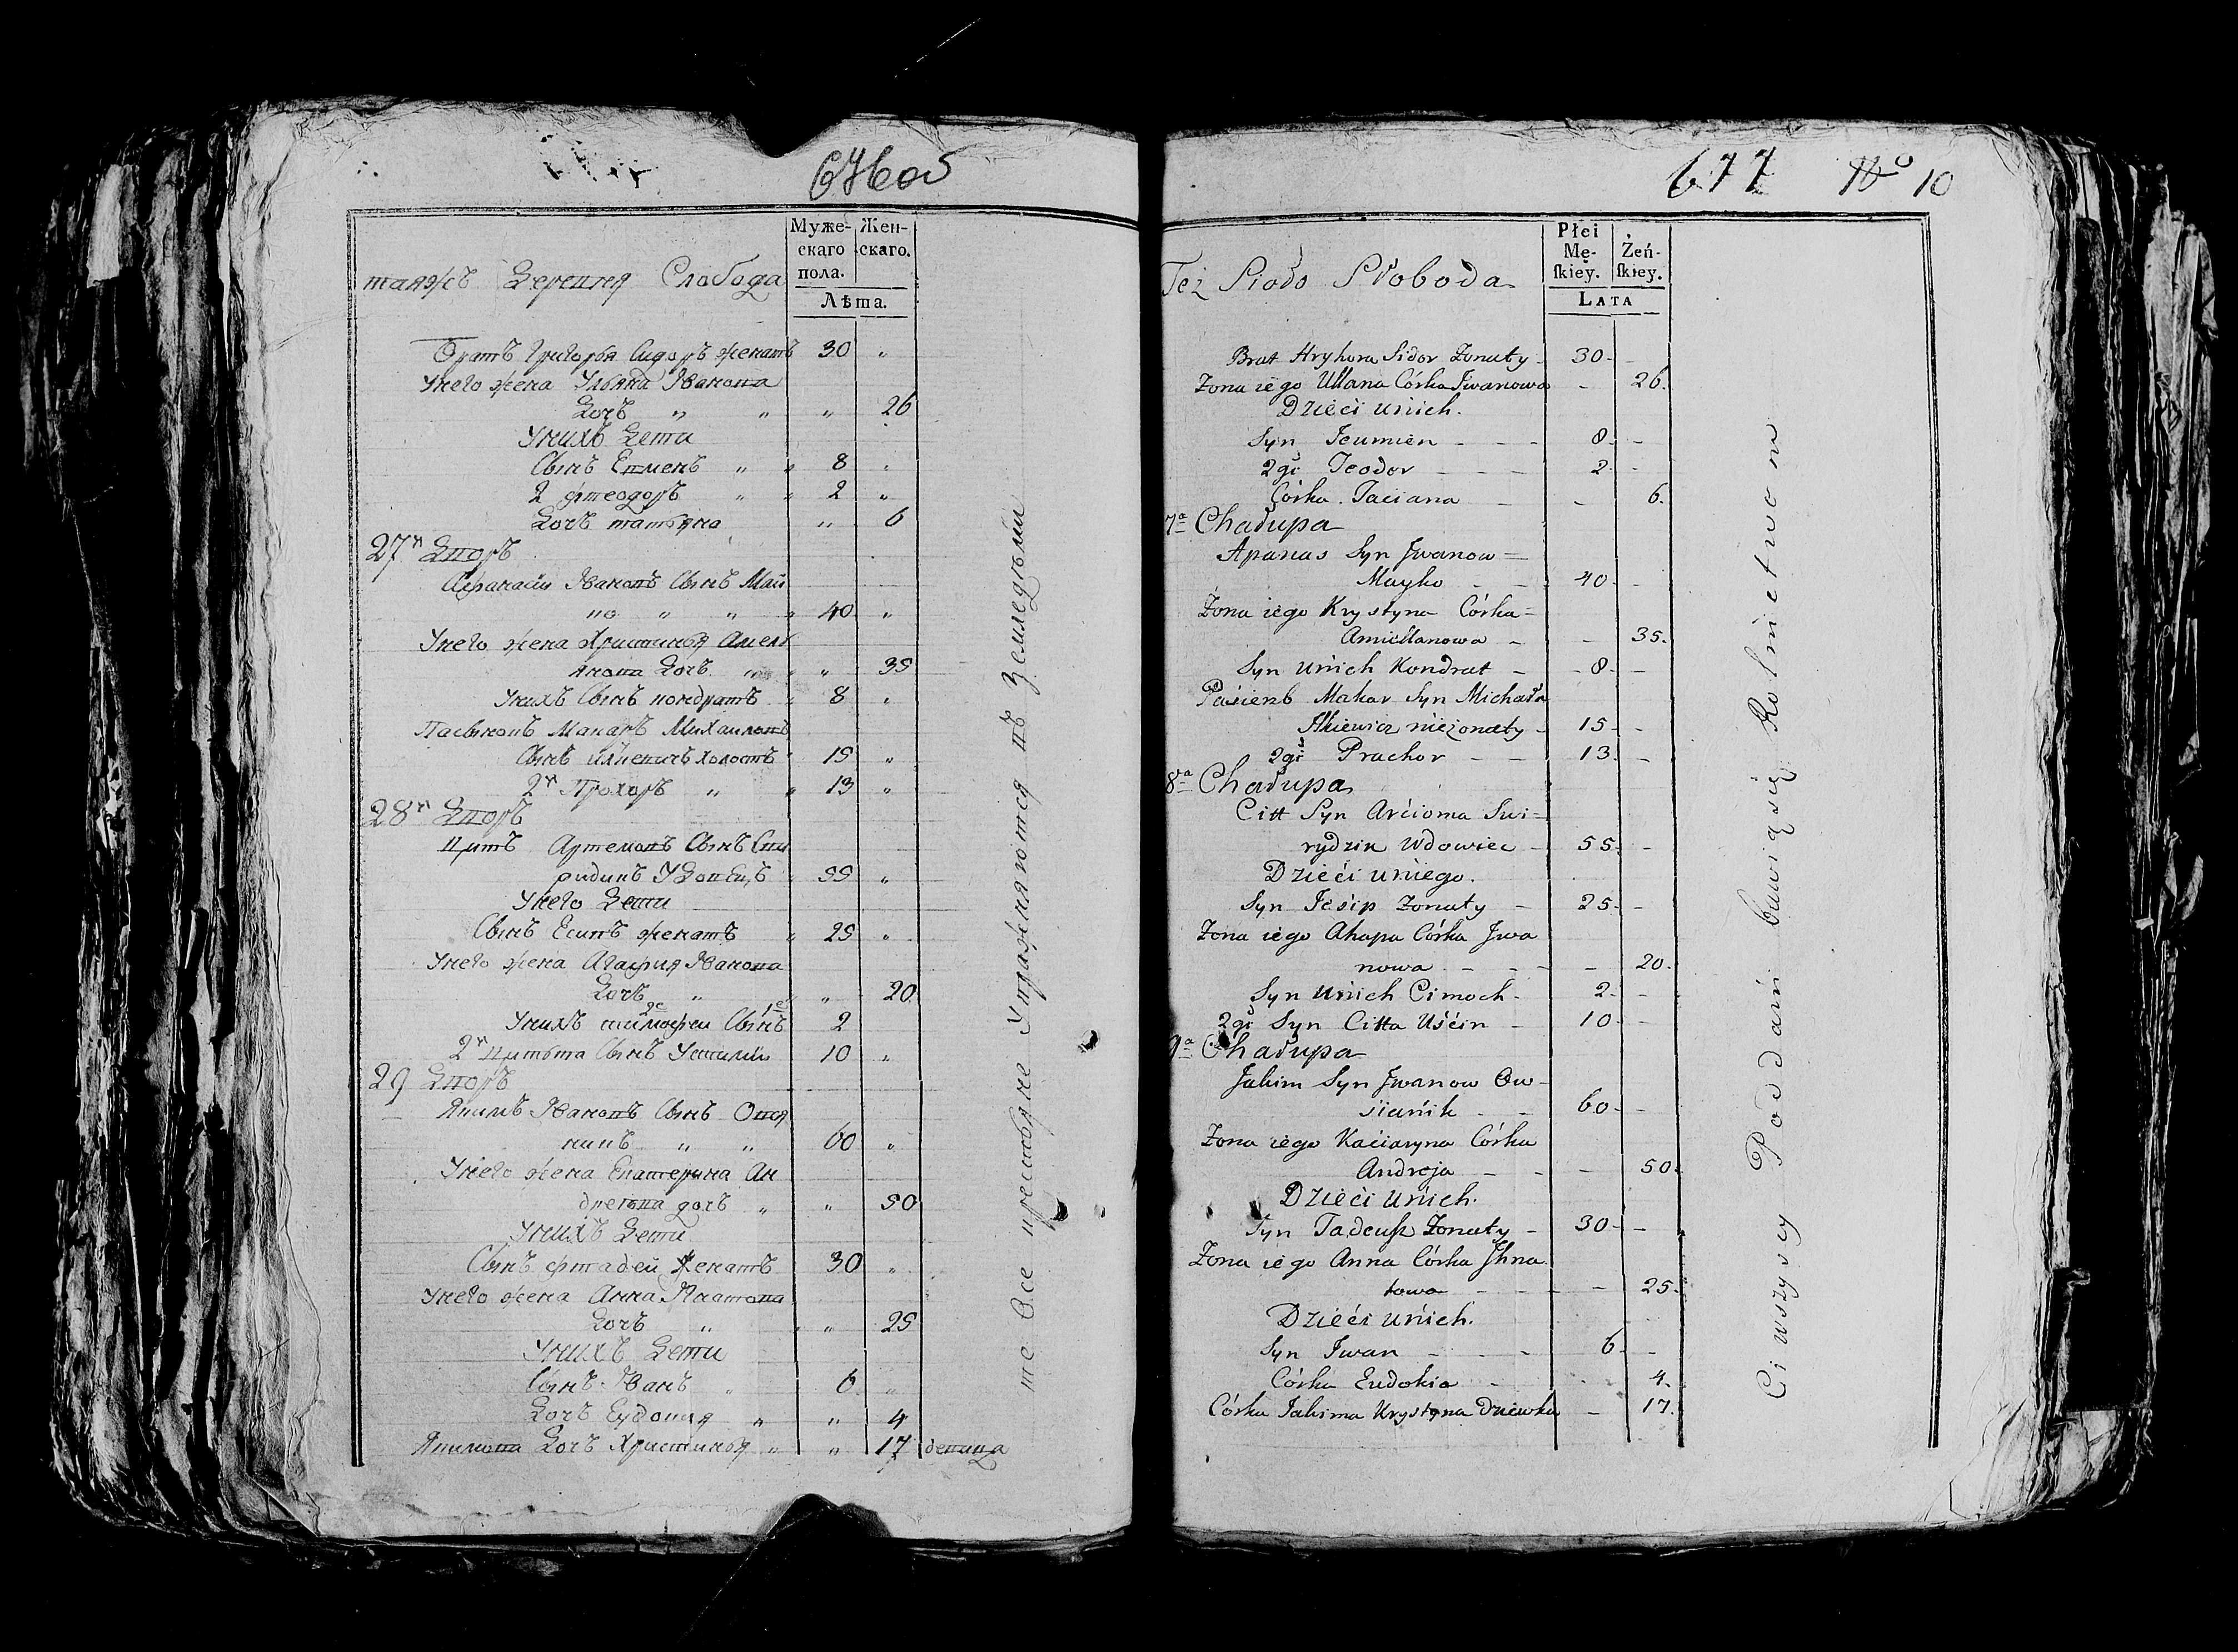 676 об
Муже-
скаго
пола.
Жен-
скаго.
Лѣта.
таяжъ Деревня Слобода
Братъ Григорья Сидоръ женатъ 30 "
Унего жена Ульяна Иванова
Дочъ " " " 26
Унихъ Дети
Сынъ Евменъ " " 8 "
2 фтеодоръ " " 2 "
Дочъ татьяна " 6
27й Дворъ
Афанасии Ивановъ Сынъ Маи
ко " " " 40 "
Унего жена Христинья Амель
янова Дочъ " " " 35
Унихъ Сынъ кондратъ " 8 "
Пасынокъ Макаръ Михаиловъ
Сынъ холостъ 15 "
2й Прохоръ " " 13 "
28й Дворъ
Цитъ Артемовъ Сынъ Сви
ридинъ Удовецъ " 55 "
Унего Дети
Сынъ Есипъ женатъ " 25 "
Унего жена Агафия Иванова
Дочъ " " " 20
Унихъ тимофеи Сынъ 2
2й Цитьта Сынъ Устинъ 10 "
29 Дворъ
Якимъ Ивановъ Сынъ Овся
никъ " " 60 "
Унего жена Екатерина Ан
дреева дочъ " " 50
Унихъ Дети
Сынъ фтадей Женатъ 30 "
Унего жена Анна Игнатова
Дочъ " " " 25
Унихъ Дети
Сынъ Иванъ " 6 "
Дочъ Еудокия " " 4
Якимова Дочъ Христинья " " 17 девица
те Все крестьяне Упражняются въ Земледѣлии
677 No 10
Płci
Mę-
ſkiey.
Żeń-
ſkiey.
LATA
Też Sioło Słoboda
Brat Hryhora Sidor Żonaty - 30 - -
Żona iego Ullana Córka Jwanowa - 26.
Dzieći uńich.
Syn Jeumien - - - 8 - -
2gi Teodor - - - 2 - -
Córka Taciana - - 6.
7a Chałupa
Apanas Syn Jwanow =
Mayko - - 40 - -
Żona iego Krystyna Córka =
Amiellanowa - - 35.
Syn uńich Kondrat - - 8 - -
Pasienb Makar Syn Michała
Ilkiewicz nieżonaty - 15 - -
2gi Prachor - - 13 - -
8a Chałupa
Citt Syn Arcioma Swi =
rydzik Wdowiec - 55 - -
Dzieći uniego.
Syn Jesip Żonaty - 25 - -
Żona iego Ahapa Córka Jwa
nowa - - - - 20.
Syn uńich Cimoch - 2 - -
2gi Syn Citta Uścin - 10 - -
9a Chałupa
Jakim Syn Jwanow Ow -
sianik - - 60 - -
Żona iego Kaciaryna Córka
Andreja - - - 50.
Dzieći uńich.
Syn Tadeuſz Żonaty - 30 - -
Żona iego Anna Córka Jhna
towa - - - - 25.
Dzieći uńich.
Syn Jwan - - - 6 - -
Córka Eudokia - - 4.
Córka Jakima Krystyna Dziewka - 17.
Ci wszyscy Poddani bawią się Rolnictwom